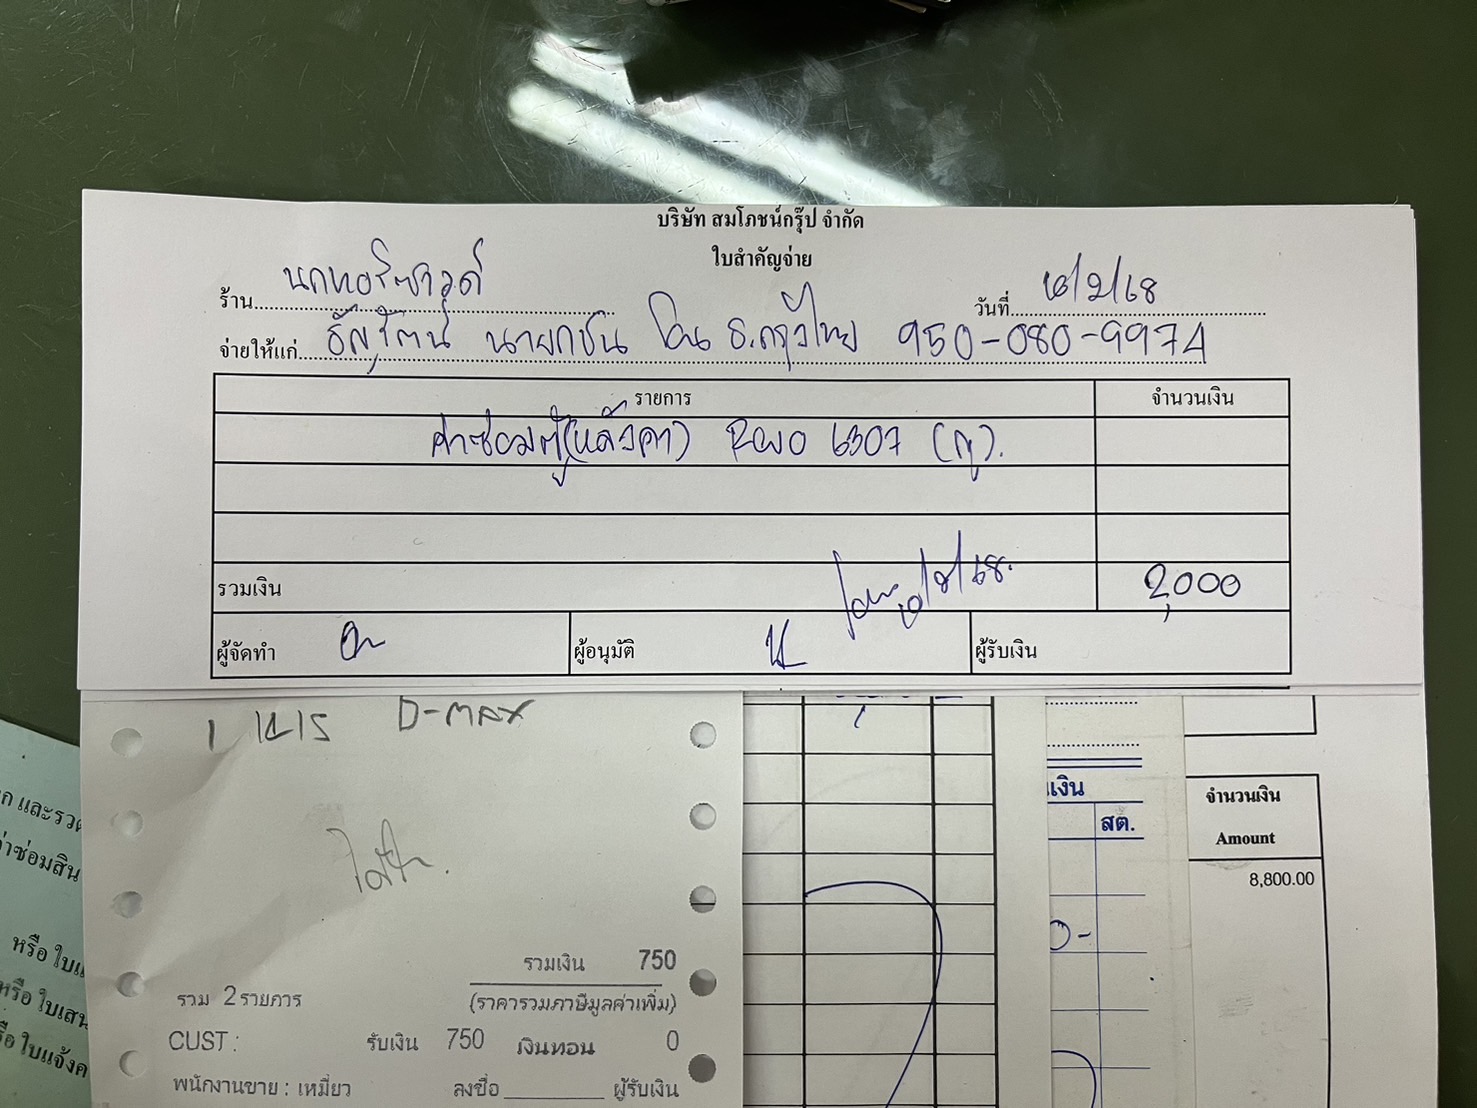 บริษัท สมโภชน์กรุ๊ป จำกัด
ใบสำคัญจ่าย
ร้าน นกหอริซาวด์
วันที่ /2/68
จ่ายให้แก่ ธัญรัตน์ นายกชน โอน ธ.กรุงไทย 950-080-9974
รายการ จำนวนเงิน
ค่าซ่อมตู้(หลังคา) Revo 6307 (ญ).
รวมเงิน 2,000
/2/68.
ผู้จัดทำ ผู้อนุมัติ ผู้รับเงิน
D-MAX
รวมเงิน 750
รวม 2รายการ (ราคารวมภาษีมูลค่าเพิ่ม)
CUST : รับเงิน 750 เงินทอน 0
พนักงานขาย : เหมี่ยว ลงชื่อ ผู้รับเงิน
เงิน
สต.
0-
จำนวนเงิน
Amount
8,800.00
และรวด
ค่าซ่อมสิน
หรือ ใบแ
หรือ ใบเสน
ใบแจ้งค